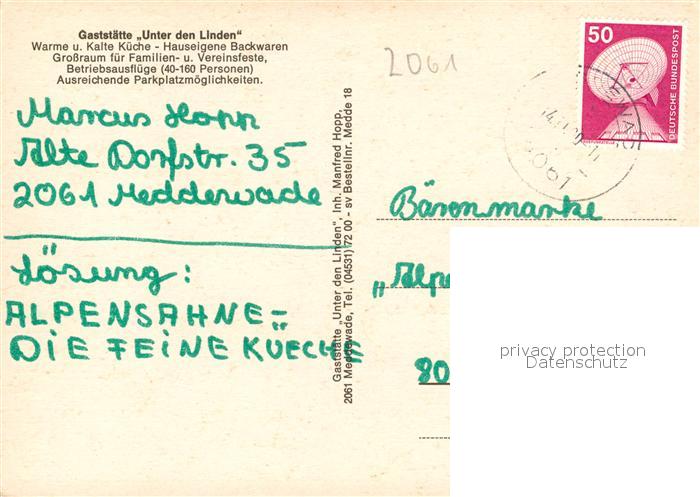 Gaststätte „Unter den Linden"
Warme u. Kalte Küche - Hauseigene Backwaren
Großraum für Familien- u. Vereinsfeste,
Betriebsausflüge (40-160 Personen)
Ausreichende Parkplatzmöglichkeiten.
2061
50
DEUTSCHE BUNDESPOST
2061
Marcus Hopp
Alte Dorfstr. 35
2061 Medderwade
Lösung:
ALPENSAHNE=
DIE FEINE KUECHE"
Gaststätte „Unter den Linden", Inh. Manfred Hopp,
2061 Meddewade, Tel. (04531) 72 00 - sv Bestellnr. Medde 18
Bärenmarke
„Alpe
80
privacy protection
Datenschutz